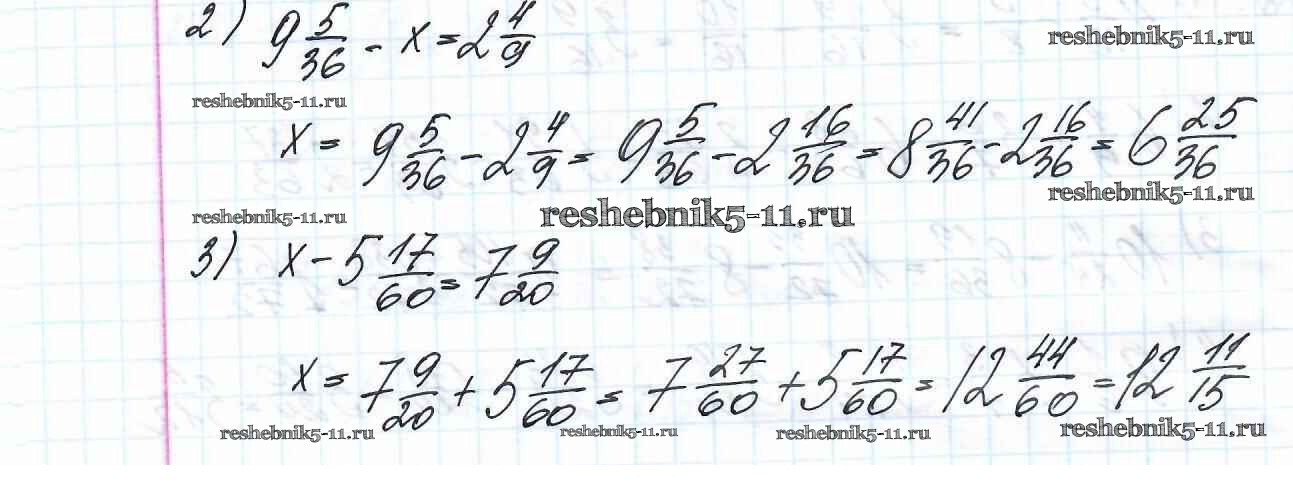 2) 9 5/36 - x = 2 4/9
reshebnik5-11.ru
reshebnik5-11.ru
x = 9 5/36 - 2 4/9 = 9 5/36 - 2 16/36 = 8 41/36 - 2 16/36 = 6 25/36
reshebnik5-11.ru
reshebnik5-11.ru
reshebnik5-11.ru
3) x - 5 17/60 = 7 9/20
x = 7 9/20 + 5 17/60 = 7 27/60 + 5 17/60 = 12 44/60 = 12 11/15
reshebnik5-11.ru
reshebnik5-11.ru
reshebnik5-11.ru
reshebnik5-11.ru